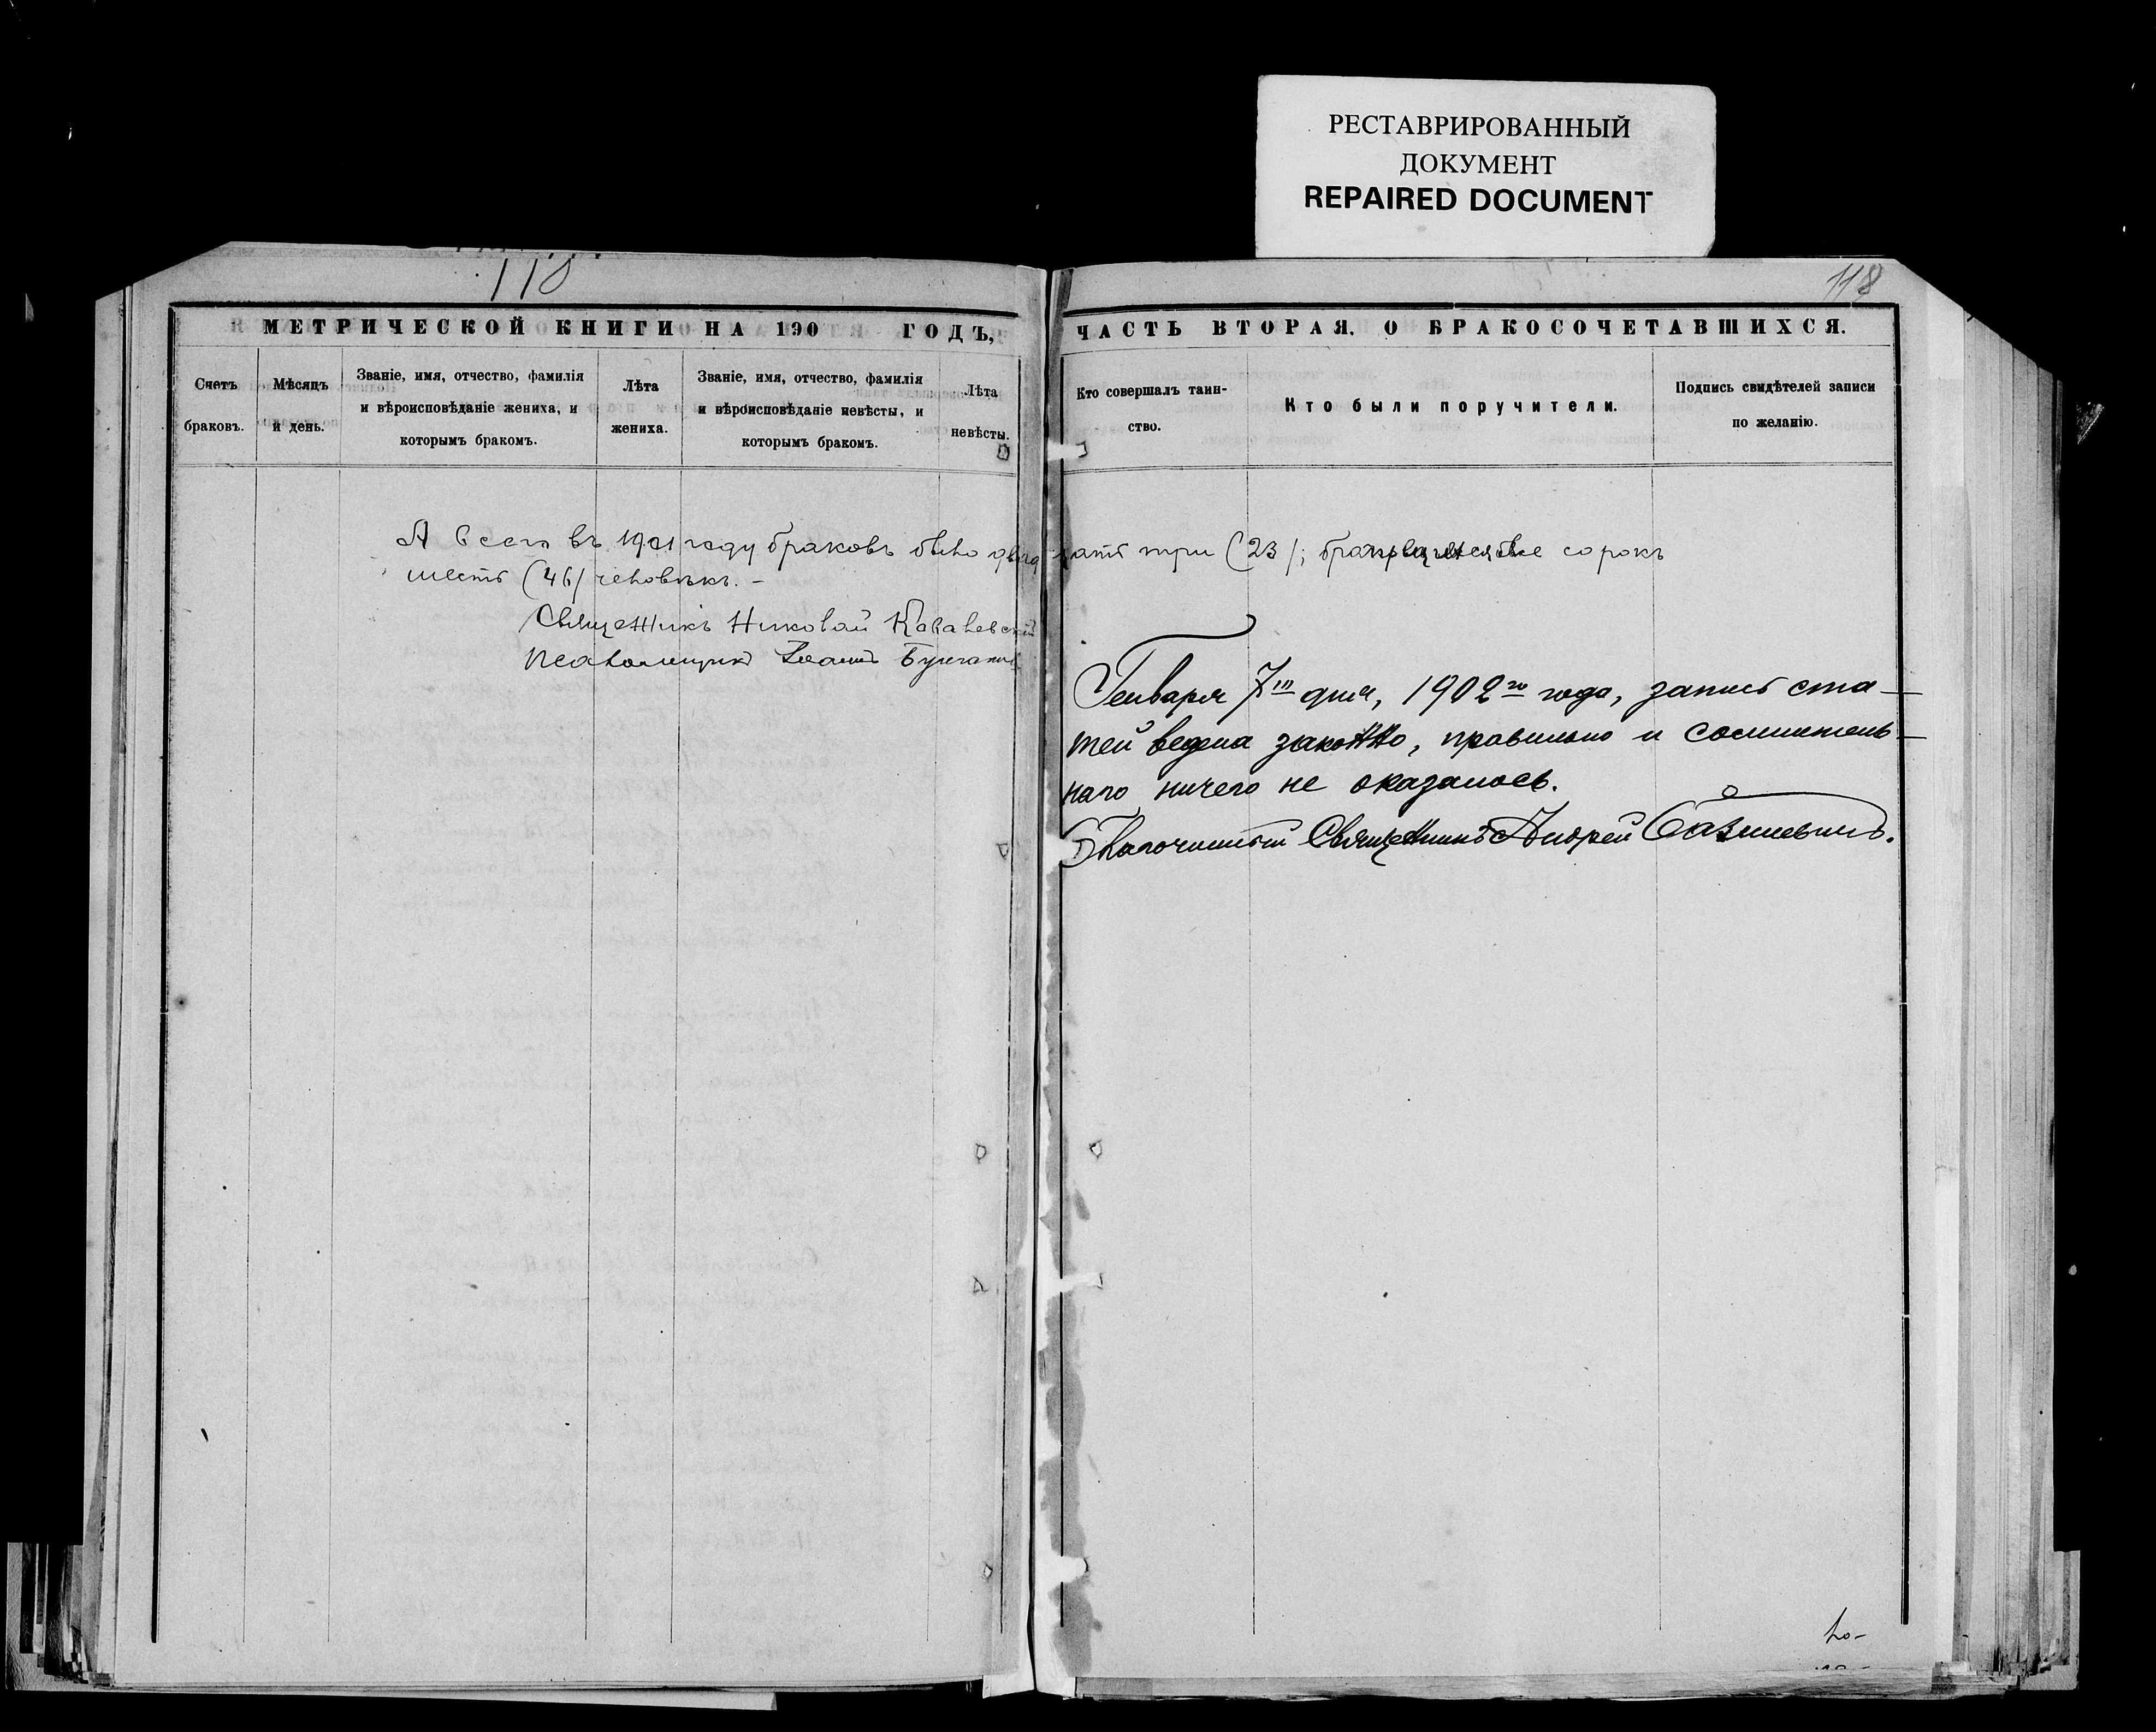 РЕСТАВРИРОВАННЫЙ
ДОКУМЕНТ
REPAIRED DOCUMENT
118
118
МЕТРИЧЕСКОЙ КНИГИ НА 190 ГОДЪ,
ЧАСТЬ ВТОРАЯ. О БРАКОСОЧЕТАВШИХСЯ.
Счетъ
браковъ.
Мѣсяцъ
и день.
Званіе, имя, отчество, фамилія
и вѣроисповѣданіе жениха, и
которымъ бракомъ.
Лѣта
жениха.
Званіе, имя, отчество, фамилія
и вѣроисповѣданіе невѣсты, и
которымъ бракомъ.
Лѣта
невѣсты.
Кто совершалъ таин-
ство.
Кто были поручители.
Подпись свидѣтелей записи
по желанію.
А всего въ 1901 году браковъ было двадцать три (23); сорокъ
шесть (46) человѣкъ. -
Священникъ Николай
Псаломщикъ Іоаннъ
Генваря 7го дня, 1902го года, запись ста-
тей ведена законно, правильно и сомнитель-
наго ничего не оказалось.
Благочинный Священникъ Андрей